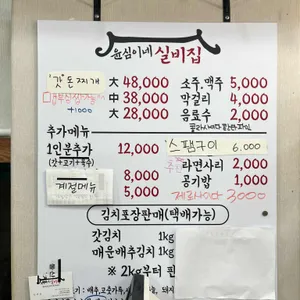 윤심이네 실비집
갓돈찌개 大 48,000
中 38,000
+1000 大 28,000
소주, 맥주 5,000
막걸리 4,000
음료수 2,000
추가메뉴
1인분추가 12,000
(갓+고기+육수)
계절메뉴 8,000
5,000
스팸구이 6.000
라면사리 2,000
공기밥 1,000
제로사이다 3000
김치포장판매(택배가능)
갓김치 1kg
매운배추김치 1kg
※ 2kg부터